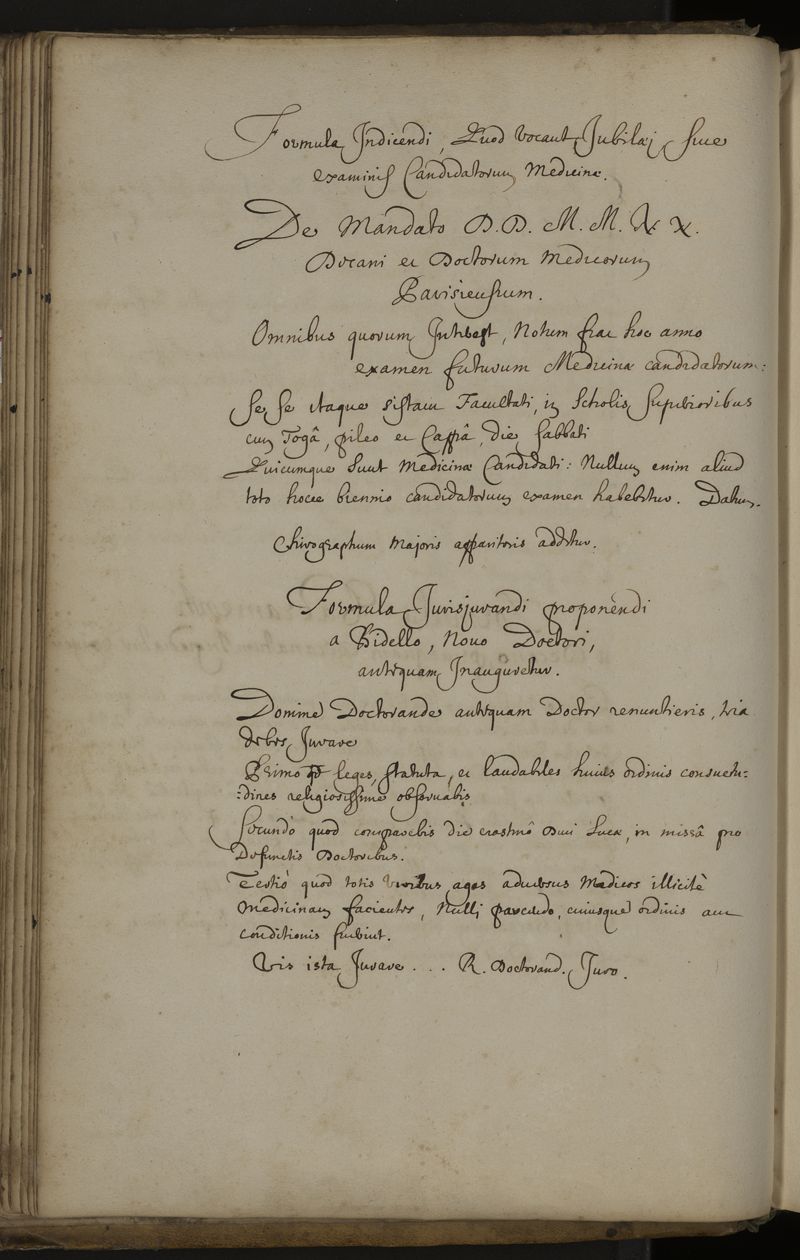 Formula Indicendi, Quod vocant Jubilæi siue
examinis Candidatorum Medicinæ.
De Mandato D.D. M. M.
Decani et Doctorum Medicorum
Parisiensium.
Omnibus quorum Interest, Notum fiat hoc anno
examen futurum Medicinæ candidatorum:
Se se itaque sistant Facultati, in Scholis superioribus
cum Togâ, pileo et Cappâ, die sabbati
Quicumque sunt Medicinæ Candidati: Nullum enim aliud
toto hocce biennio candidatorum examen habebitur. Datum.
Chirographum Majoris apparitoris additur.
Formula Jurisjurandi proponendi
a Bidello, Nouo Doctori,
antequam Inauguretur.
Domine Doctorande antequam Doctor renuntieris, tria
debes Jurare
Primo leges, statuta, et laudabiles huius ordinis consuetu:
:dines religiosissime obseruabis
Secundò quod comparebis die crastinô Diui Lucæ, in missâ pro
Defunctis Doctoribus.
Tertiò quod totis viribus ages aduersus Medicos illicitè
Medicinam facientes, Nulli parcendo, cuiusque ordinis aut
conditionis fuerint.
Vis ista Jurare . . . R. Doctorand. Juro.